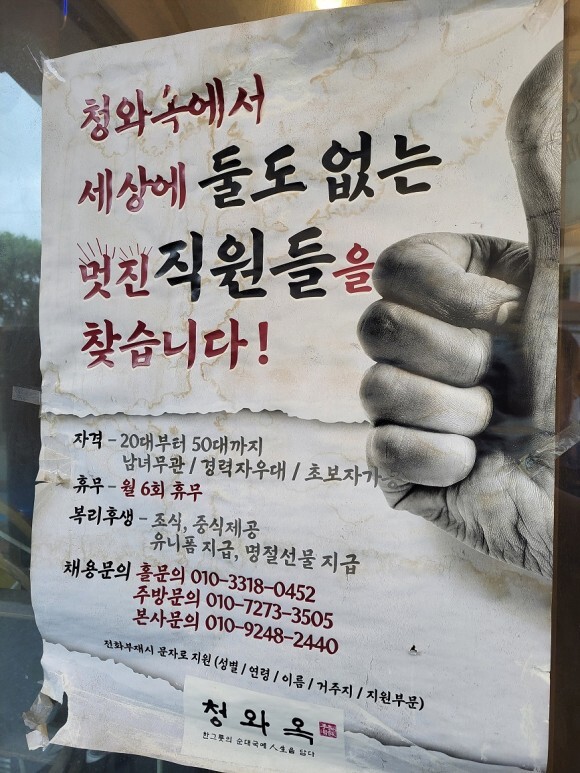 청와옥에서
세상에 둘도 없는
멋진 직원들을
찾습니다!
자격 - 20대부터 50대까지
남녀무관 / 경력자우대 / 초보자가능
휴무 - 월 6회 휴무
복리후생 - 조식, 중식제공
유니폼 지급, 명절선물 지급
채용문의 홀문의 010-3318-0452
주방문의 010-7273-3505
본사문의 010-9248-2440
전화부재시 문자로 지원 (성별 / 연령 / 이름 / 거주지 / 지원부문)
청와옥
한그릇의 순대국에 人生을 담다